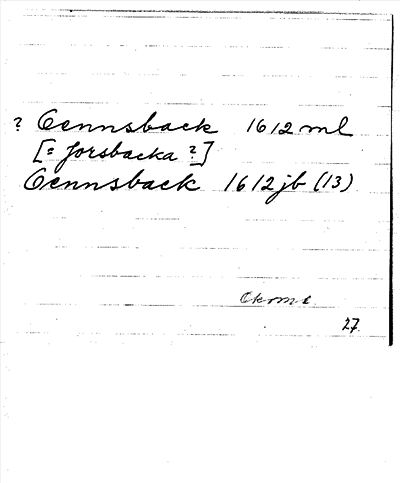 ? Oennsback 1612 ml
[= Forsbacka ?]
Oennsback 1612 jb (13)
27.